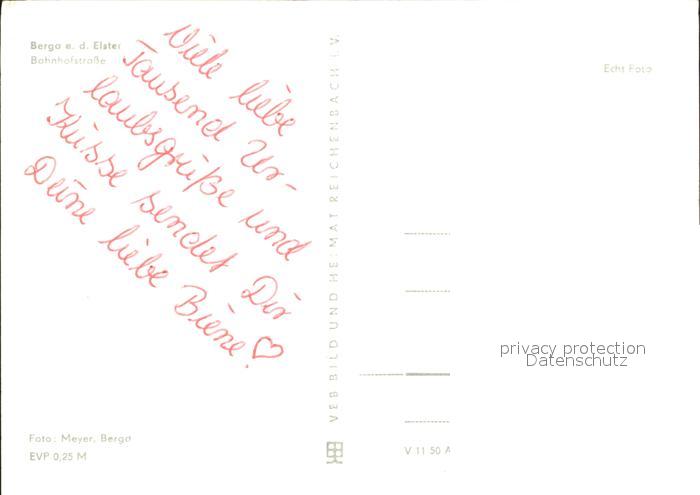 Berga a. d. Elster
Bahnhofstraße
Viele liebe
Tausend Ur-
laubsgrüße und
Küsse sendet Dir
Deine liebe Biene!
VEB BILD UND HEIMAT REICHENBACH I. V.
Echt Foto
privacy protection
Datenschutz
Foto: Meyer, Berga
EVP 0,25 M
V 11 50 A